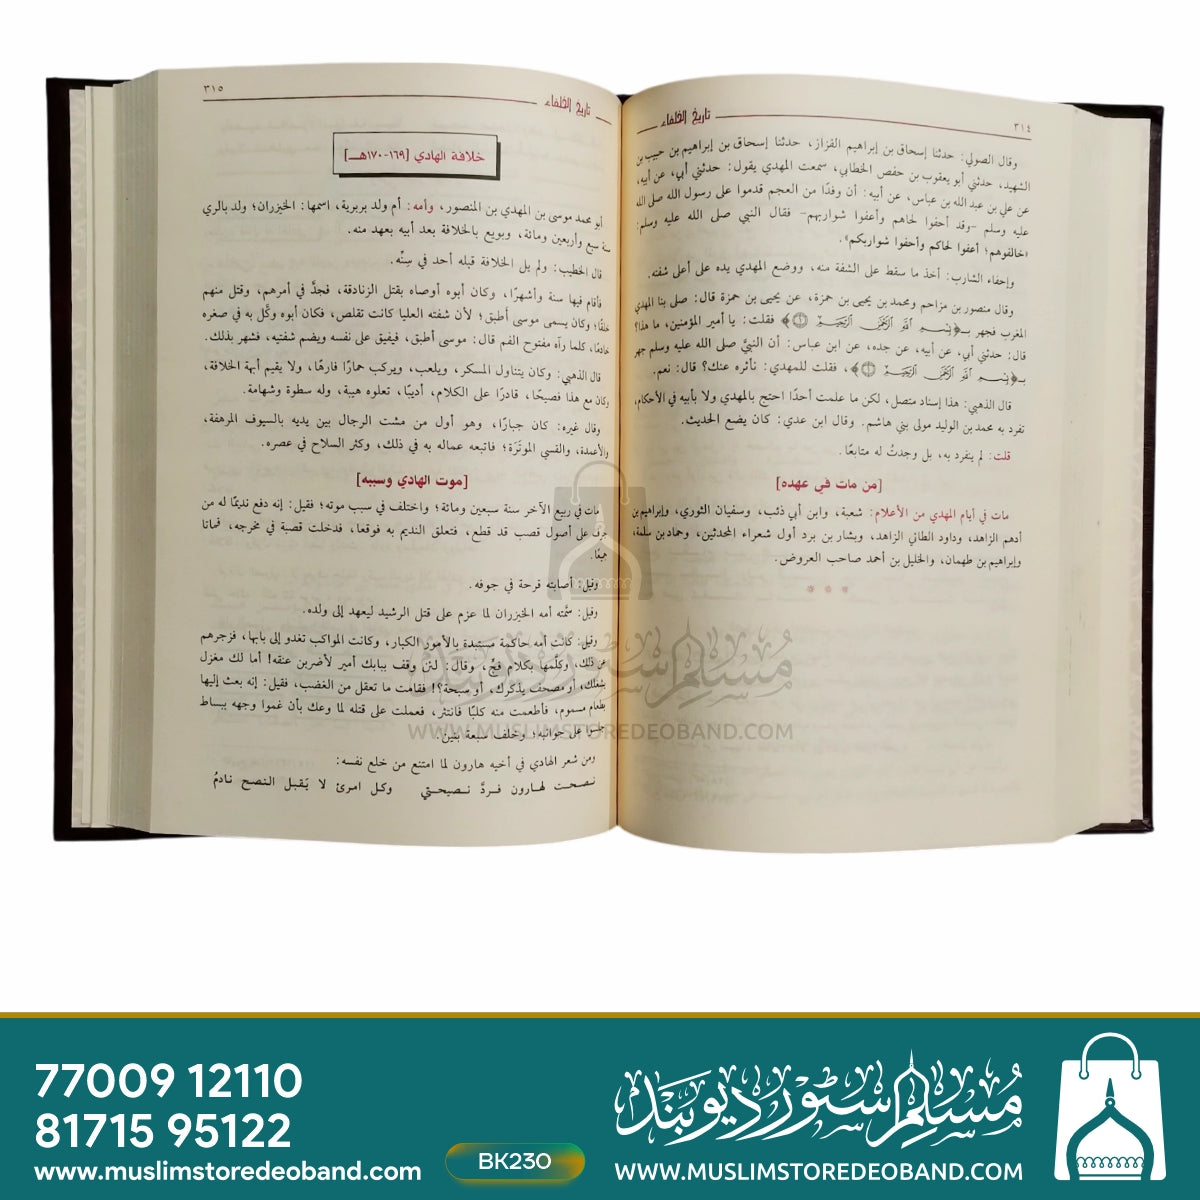 ٣١٤
تاريخ الخلفاء
وقال الصولي: حدثنا إسحاق بن إبراهيم القزاز، حدثنا إسحاق بن إبراهيم بن حبيب بن
الشهيد، حدثني أبو يعقوب بن حفص الخطابي، سمعت المهدي يقول: حدثني أبي، عن أبيه،
عن علي بن عبد الله بن عباس، عن أبيه: أن وفدًا من العجم قدموا على رسول الله صلى الله
عليه وسلم -وقد أحفوا لحاهم وأعفوا شواربهم- فقال النبي صلى الله عليه وسلم:
«خالفوهم؛ أعفوا لحاكم وأحفوا شواربكم».
وإحفاء الشارب: أخذ ما سقط على الشفة منه، ووضع المهدي يده على أعلى شفته.
وقال منصور بن مزاحم ومحمد بن يحيى بن حمزة، عن يحيى بن حمزة قال: صلى بنا المهدي
المغرب فجهر بـ﴿بسم الله الرحمن الرحيم ۝١﴾ فقلت: يا أمير المؤمنين، ما هذا؟
قال: حدثني أبي، عن أبيه، عن جده، عن ابن عباس: أن النبيَّ صلى الله عليه وسلم جهر
بـ﴿بسم الله الرحمن الرحيم ۝١﴾، فقلت للمهدي: نأثره عنك؟ قال: نعم.
قال الذهبي: هذا إسناد متصل، لكن ما علمت أحدًا احتج بالمهدي ولا بأبيه في الأحكام،
تفرد به محمد بن الوليد مولى بني هاشم. وقال ابن عدي: كان يضع الحديث.
قلت: لم ينفرد به، بل وجدتُ له متابعًا.
[من مات في عهده]
مات في أيام المهدي من الأعلام: شعبة، وابن أبي ذئب، وسفيان الثوري، وإبراهيم بن
أدهم الزاهد، وداود الطائي الزاهد، وبشار بن برد أول شعراء المحدثين، وحماد بن سلمة،
وإبراهيم بن طهمان، والخليل بن أحمد صاحب العروض.
* * *
تاريخ الخلفاء
٣١٥
خلافة الهادي [١٦٩-١٧٠هـ]
أبو محمد موسى بن المهدي بن المنصور، وأمه: أم ولد بربرية، اسمها: الخيزران؛ ولد بالري
سنة سبع وأربعين ومائة، وبويع بالخلافة بعد أبيه بعهد منه.
قال الخطيب: ولم يل الخلافة قبله أحد في سِنِّه.
فأقام فيها سنة وأشهرًا، وكان أبوه أوصاه بقتل الزنادقة، فجدَّ في أمرهم، وقتل منهم
خلقًا؛ وكان يسمى موسى أطبق؛ لأن شفته العليا كانت تقلص، فكان أبوه وكَّل به في صغره
خادمًا، كلما رآه مفتوح الفم قال: موسى أطبق، فيفيق على نفسه ويضم شفتيه، فشهر بذلك.
قال الذهبي: وكان يتناول المسكر، ويلعب، ويركب حمارًا فارهًا، ولا يقيم أبهة الخلافة،
وكان مع هذا فصيحًا، قادرًا على الكلام، أديبًا، تعلوه هيبة، وله سطوة وشهامة.
وقال غيره: كان جبارًا، وهو أول من مشت الرجال بين يديه بالسيوف المرهفة،
والأعمدة، والقسي الموتَرَة؛ فاتبعه عماله به في ذلك، وكثر السلاح في عصره.
[موت الهادي وسببه]
مات في ربيع الآخر سنة سبعين ومائة؛ واختلف في سبب موته؛ فقيل: إنه دفع نديمًا له من
جرف على أصول قصب قد قطع، فتعلق النديم به فوقعا، فدخلت قصبة في مخرجه، فماتا
جميعًا.
وقيل: أصابته قرحة في جوفه.
وقيل: سمَّته أمه الخيزران لما عزم على قتل الرشيد ليعهد إلى ولده.
وقيل: كانت أمه حاكمة مستبدة بالأمور الكبار، وكانت المواكب تغدو إلى بابها، فزجرهم
عن ذلك، وكلَّمها بكلام فجٍّ، وقال: لئن وقف ببابك أمير لأضربن عنقه! أما لك مغزل
يشغلك، أو مصحف يذكرك، أو سبحة؟! فقامت ما تعقل من الغضب، فقيل: إنه بعث إليها
بطعام مسموم، فأطعمت منه كلبًا فانتثر، فعملت على قتله لما وعك بأن غموا وجهه ببساط
جلسوا على جوانبه؛ وخلف سبعة بنين.
ومن شعر الهادي في أخيه هارون لما امتنع من خلع نفسه:
نصحت لهارون فردَّ نصيحتي وكل امرئ لا يَقبل النصح نادمُ
مسلم سٹور دیوبند
WWW.MUSLIMSTOREDEOBAND.COM
77009 12110
81715 95122
www.muslimstoredeoband.com
BK230
مسلم سٹور دیوبند
WWW.MUSLIMSTOREDEOBAND.COM